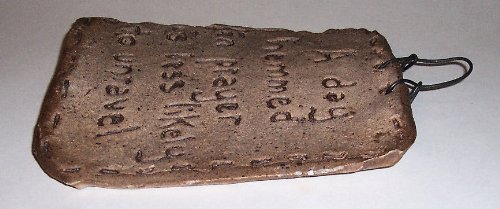 A day
hemmed
in prayer
is less likely
to unravel